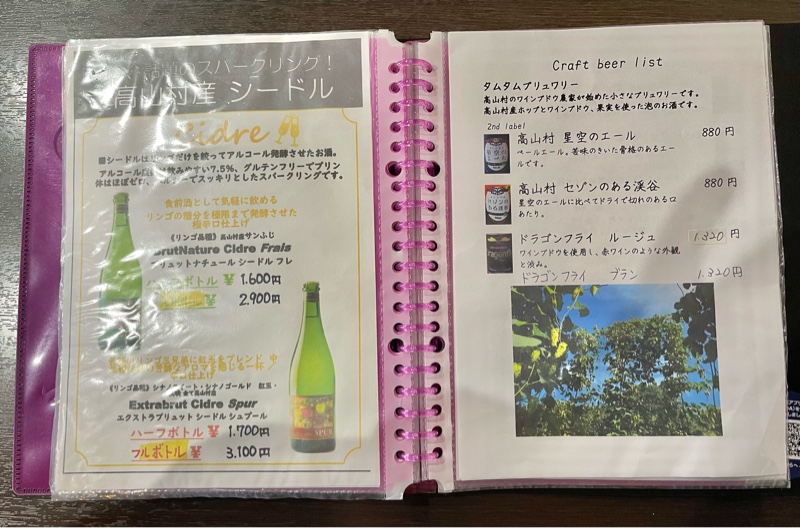 のスパークリング!
高山村産 シードル
Cidre
だけを絞ってアルコール発酵させたお酒。
飲みやすい7.5%、グルテンフリーでプリン
体はほぼゼロ、 でスッキリとしたスパークリングです。
食前酒として気軽に飲める
リンゴの糖分を極限まで発酵させた
極辛口仕上げ
《リンゴ品種》高山村産サンふじ
BrutNature Cidre Frais
ブリュットナチュール シードル フレ
ハーフボトル ¥ 1.600円
¥ 2.900円
をブレンド
口仕上げ
《リンゴ品種》シナノスイート・シナノゴールド 紅玉・
全て高山村産
Extrabrut Cidre Spur
エクストラブリュット シードル シュプール
ハーフボトル ¥ 1.700円
フルボトル ¥ 3.100円
Craft beer list
タムタムブリュワリー
高山村のワインブドウ農家が始めた小さなブリュワリーです。
高山村産ホップとワインブドウ、果実を使った泡のお酒です。
2nd label
高山村 星空のエール 880円
ペールエール。苦味のきいた骨格のあるエー
ルです。
高山村 セゾンのある渓谷 880円
星空のエールに比べてドライで切れのある口
あたり。
ドラゴンフライ ルージュ 1.320円
ワインブドウを使用し、赤ワインのような外観
と渋み。
ドラゴンフライ ブラン 1.320円